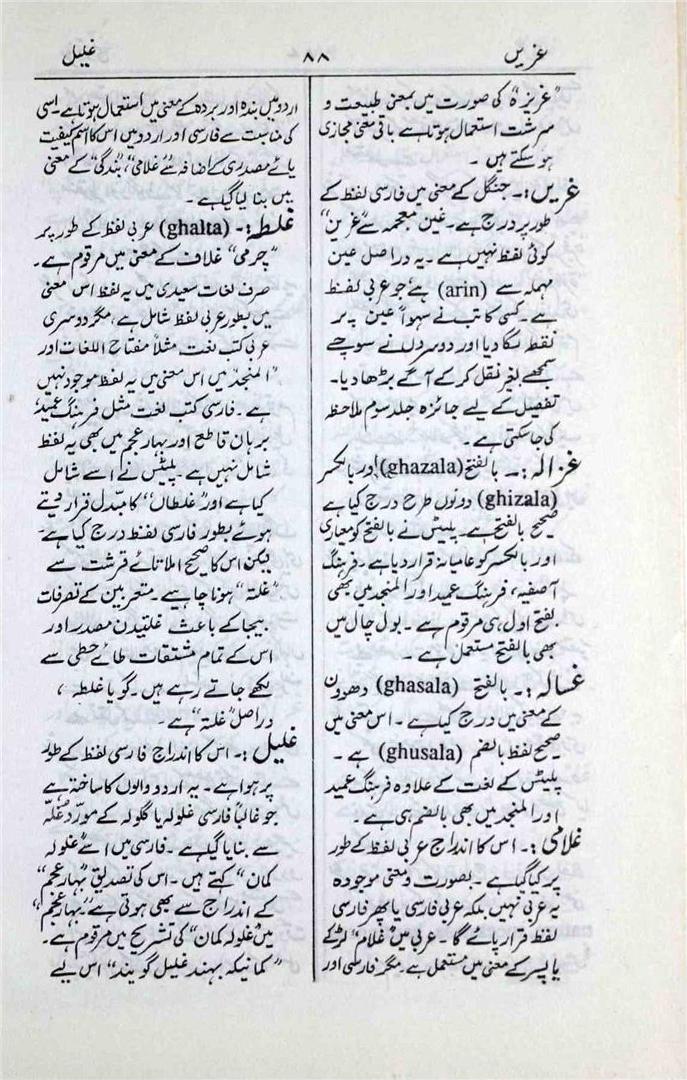 غریں
۸۸
غلیل
"غریزہ" کی صورت میں بمعنی طبیعت و
سرشت استعمال ہوتا ہے باقی معنی مجازی
ہو سکتے ہیں ۔
غریں :۔ جنگل کے معنی میں فارسی لفظ کے
طور پر درج ہے۔ غین معجمہ سے "غرین"
کوئی لفظ نہیں ہے ۔ یہ دراصل عین
مہملہ سے (arin) ہے جو عربی لفظ
ہے۔ کسی کاتب نے سہواً عین پر
نقطہ لگا دیا اور دوسروں نے سوچے
سمجھے بغیر نقل کرکے آگے بڑھا دیا۔
تفصیل کے لیے جائزہ جلد سوم ملاحظہ
کی جا سکتی ہے ۔
غزالہ :۔ بالفتح (ghazala) اور بالکسر
(ghizala) دونوں طرح درج کیا ہے
صحیح بالفتح ہے۔ پلیٹس نے بالفتح کو معیاری
اور بالکسر کو عامیانہ قرار دیا ہے۔ فرہنگ
آصفیہ، فرہنگ عمید اور المنجد میں بھی
بفتح اول ہی مرقوم ہے ۔ بول چال میں
بھی بالفتح مستعمل ہے ۔
غسالہ :۔ بالفتح (ghasala) دھوون
کے معنی میں درج کیا ہے ۔ اس معنی میں
صحیح لفظ بالضم (ghusala) ہے ۔
پلیٹس کے لغت کے علاوہ فرہنگ عمید
اور المنجد میں بھی بالضم ہی ہے ۔
غلامی :۔ اس کا اندراج عربی لفظ کے طور
پر کیا گیا ہے ۔ بصورت و معنی موجودہ
یہ عربی نہیں بلکہ عربی فارسی یا پھر فارسی
لفظ قرار پائے گا ۔ عربی میں "غلام" لڑکے
یا پسر کے معنی میں مستعمل ہے۔ مگر فارسی اور
اردو میں بندہ اور بردہ کے معنی میں استعمال ہوتا ہے۔ اسی
کی مناسبت سے فارسی اور اردو میں اس کا اسم کیفیت
یائے مصدری کے اضافہ سے "غلامی"، "بندگی" کے معنی
میں بنا لیا گیا ہے ۔
غلطہ :۔ (ghalta) عربی لفظ کے طور پر
"چرمی" غلاف کے معنی میں مرقوم ہے ۔
صرف لغات سعیدی میں یہ لفظ اس معنی
میں بطور عربی لفظ شامل ہے، مگر دوسری
عربی کتب لغت مثلاً مفتاح اللغات اور
المنجد میں اس معنی میں یہ لفظ موجود نہیں
ہے ۔ فارسی کتب لغت مثل فرہنگ عمید،
برہان قاطع اور بہار عجم میں بھی یہ لفظ
شامل نہیں ہے ۔ پلیٹس نے اسے شامل
کیا ہے اور "غلطاں" کا مبدّل قرار دیتے
ہوئے بطور فارسی لفظ درج کیا ہے۔
لیکن اس کا صحیح املا تائے قرشت سے
"غلتہ" ہونا چاہیے ۔ متعربین کے تصرفات
بیجا کے باعث غلتیدن مصدر اور
اس کے تمام مشتقات طائے حطی سے
لکھے جاتے رہے ہیں ۔ گویا غلطہ ،
دراصل "غلتہ" ہے ۔
غلیل :۔ اس کا اندراج فارسی لفظ کے طور
پر ہوا ہے ۔ یہ اردو والوں کا ساختہ ہے
جو غالباً فارسی غلولہ یا گلولہ کے مورّد غُلّہ
سے بنایا گیا ہے ۔ فارسی میں اسے "غلولہ
کمان" کہتے ہیں ۔ اس کی تصدیق "بہار عجم"
کے اندراج سے بھی ہوتی ہے "بہار عجم"
میں "غلولہ کمان" کی تشریح میں مرقوم ہے۔
"کمانیکہ بہند غلیل گویند" اس لیے